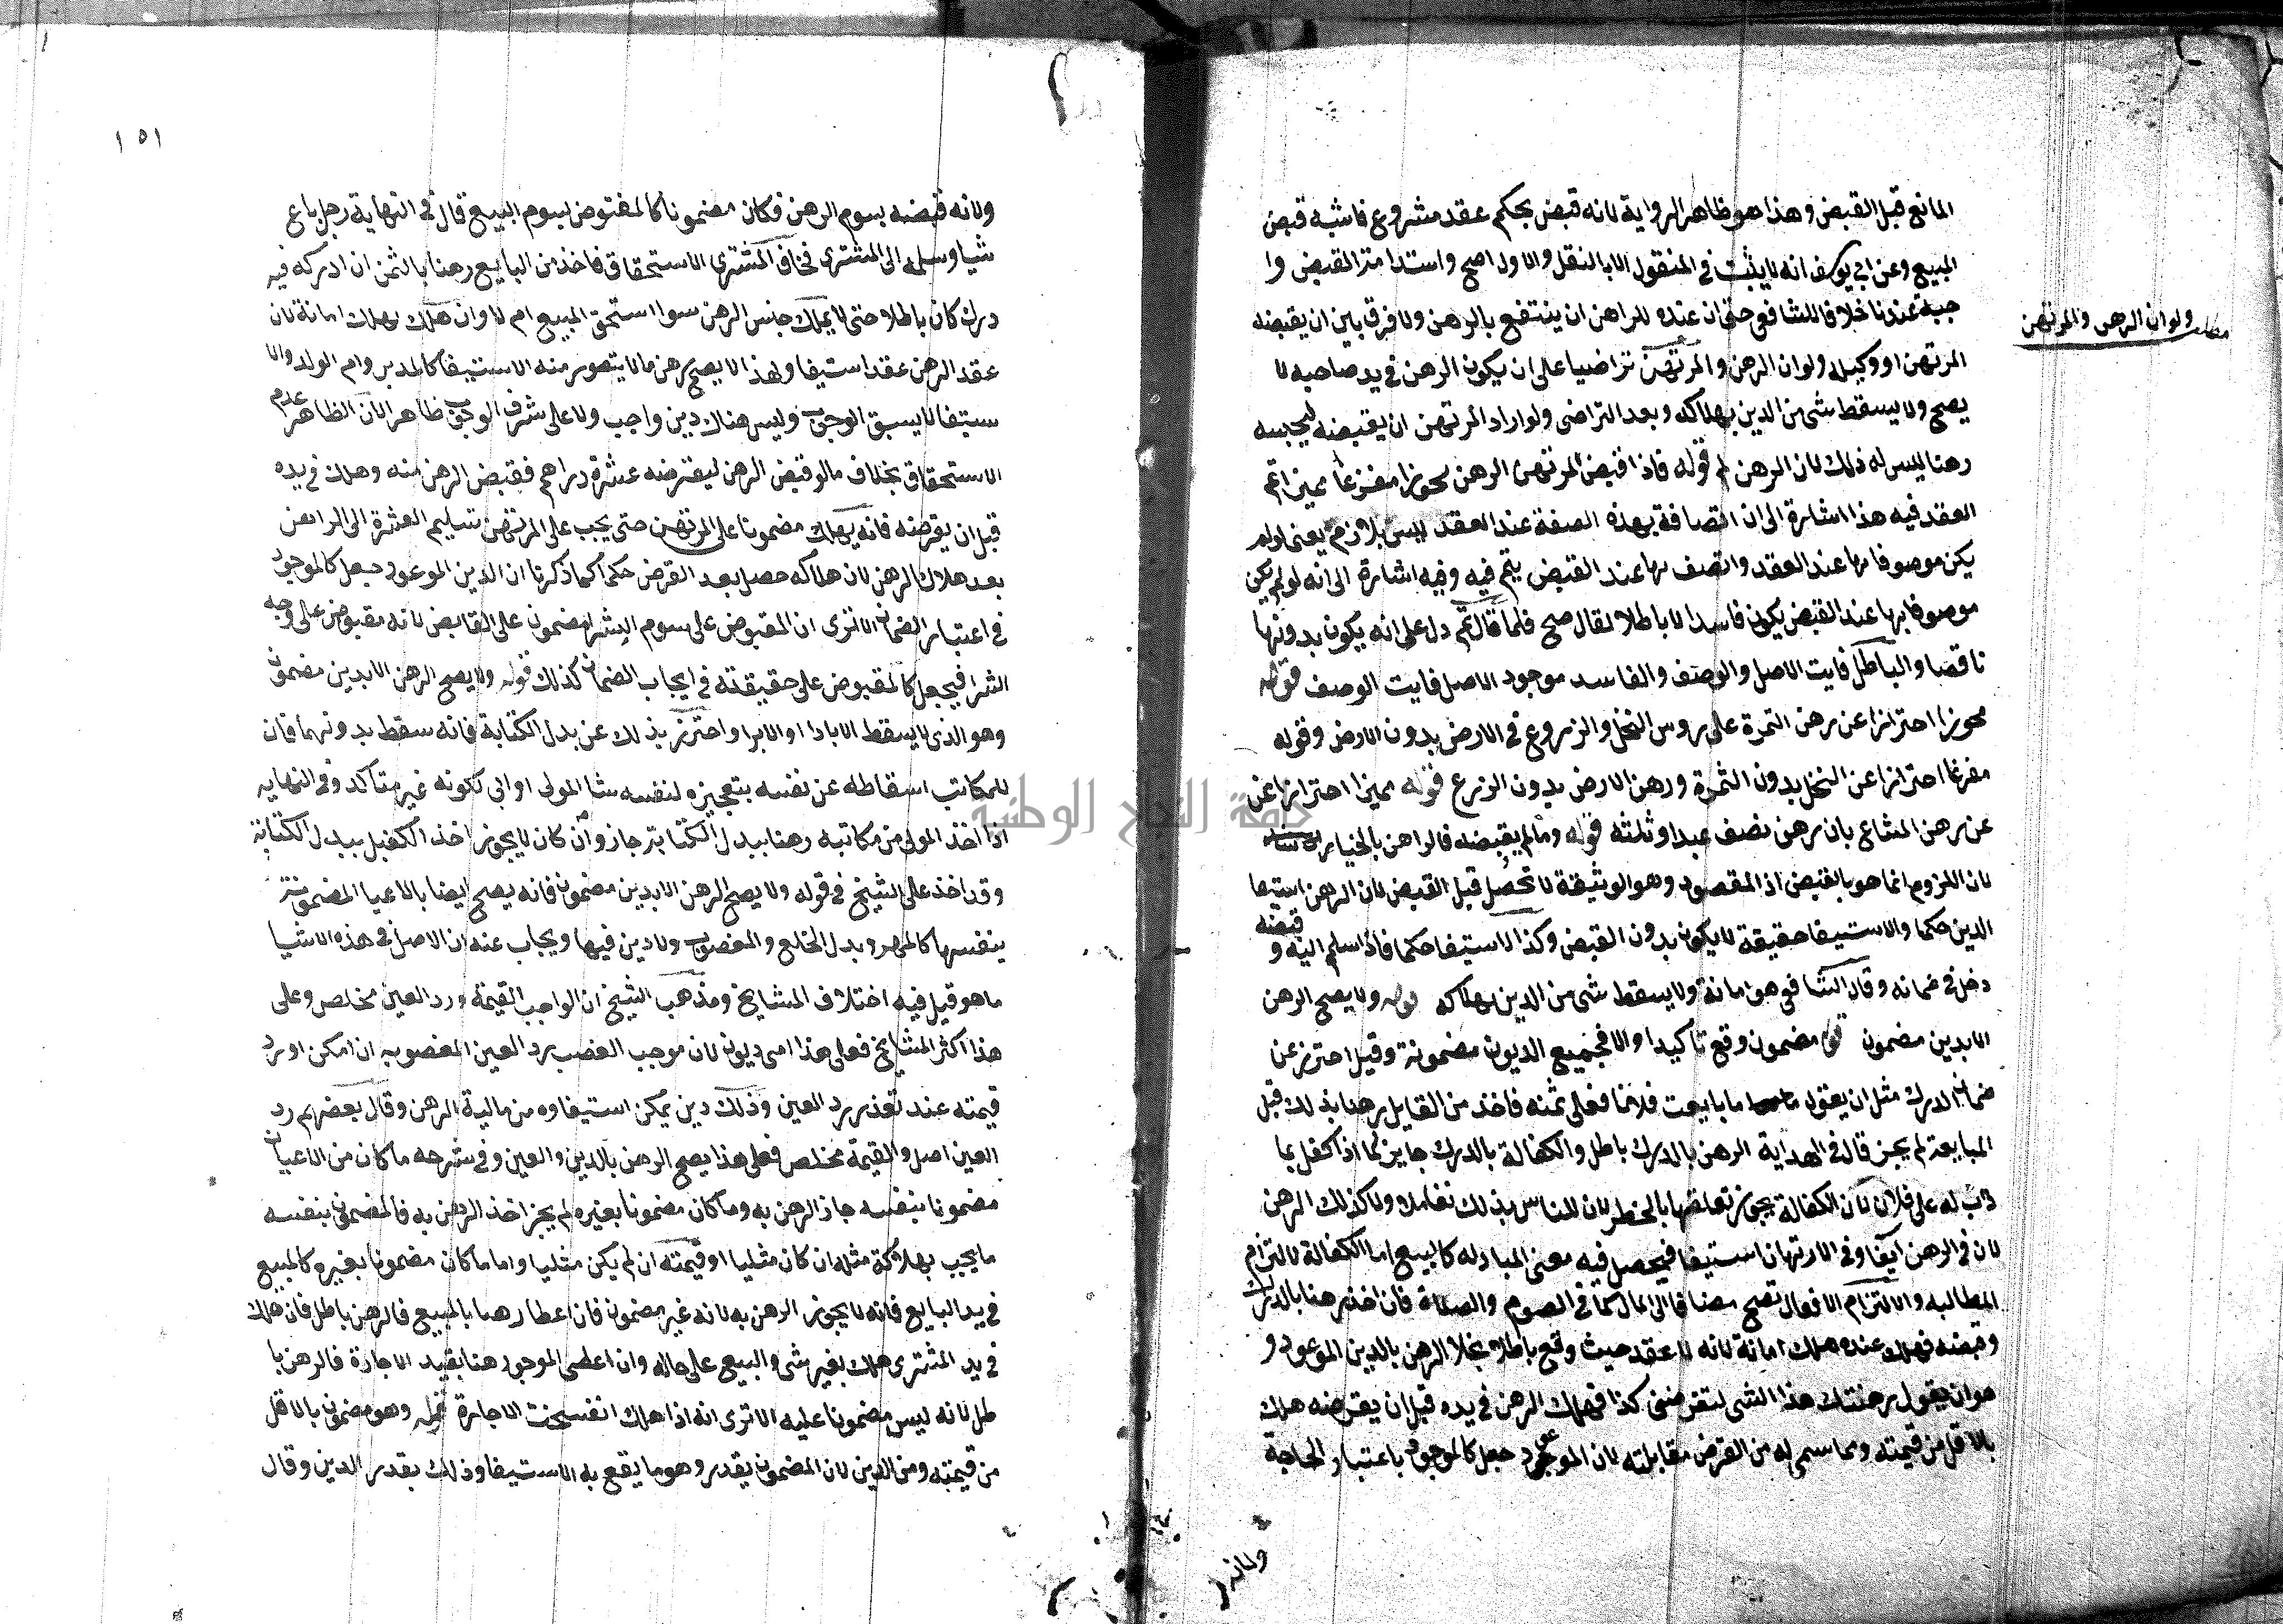 المانع قبل القبض وهذا هو ظاهر الرواية لانه قبض بحكم عقد مشروع فاشبه قبض
المبيع وعن ابي يوسف انه لا يثبت في المنقول الا بالنقل والاول اصح واستدامة القبض وا
جبة عندنا خلافا للشافعي حتى ان عنده للراهن ان ينتفع بالرهن ولا فرق بين ان يقبضه
مطلب ولو ان الرهن والمرتهن
المرتهن او وكيله ولو ان الرهن والمرتهن تراضيا على ان يكون الرهن في يد صاحبه لا
يصح ولا يسقط شي من الدين بهلاكه وبعد التراضي ولو اراد المرتهن ان يقبضه ليحبسه
رهنا ليس له ذلك لان الرهن لم قوله فاذا قبض المرتهن الرهن محوزا مفرغا مميزا تم
العقد فيه هذا اشارة الى ان اتصافه بهذه الصفة عند العقد ليس بلازم يعني لو لم
يكن موصوفا بها عند العقد واتصف بها عند القبض يتم فيه وفيه اشارة الى انه لو لم يكن
موصوفا بها عند القبض يكون فاسدا لا باطلا لقال صح فلما قال تم دل على انه يكون بدونها
ناقصا والباطل فايت الاصل والوصف والفاسد موجود الاصل فايت الوصف قوله
محوزا احترازا عن رهن الثمرة على روس النخل والزروع في الارض بدون الارض وقوله
مفرغا احترازا عن النخل بدون الثمرة ورهن الارض بدون الزرع قوله مميزا احترازا عن
عن رهن المشاع بان رهن نصف عبد او ثلثه قوله وما لم يقبضه فالراهن بالخيار
لان اللزوم انما هو بالقبض اذ المقصود وهو الوثيقة لا تحصل قبل القبض لان الرهن استيفا
الدين حكما والاستيفا حقيقة لا يكون بدون القبض وكذا استيفا حكما فاذا سلم اليه وقبضه
دخل في ضمانه وقال الشافعي هو امانة ولا يسقط شي من الدين بهلاكه قوله ولا يصح الرهن
الا بدين مضمون قوله مضمون وقع تاكيدا والا فجميع الديون مضمونة وقيل احترز عن
ضمان الدرك مثل ان يقول ما بايعت فلانا فعلي ثمنه فاخذ من القايل رهنا بذلك قبل
المبايعة لم يجز قال في الهداية الرهن بالدرك باطل والكفالة بالدرك جايز كما اذا كفل بما
ذاب له على فلان لان الكفالة يجوز تعلقها بالخطر لان للناس بذلك تعامل ولا كذلك الرهن
لان في الرهن ايفا وفي الارتهان استيفا فيحصل فيه معنى المبادله كالبيع اما الكفالة لالتزام
المطالبه والالتزام الافعال تصح مضافا الى المال كما في الصوم والصلاة فان اخذ رهنا بالدرك
وقبضه فهلك عنده هلك امانة لانه لا عقد حيث وقع باطلا بخلا الرهن بالدين الموعود و
هو ان يقول رهنتك هذا الشي لتقرضني كذا فهلك الرهن في يده قبل ان يقرضه هلك
بالاقل من قيمته ومما سمي له من القرض مقابلته لان الموعود جعل كالموجود باعتبار الحاجة
ولانه
١٥١
ولانه قبضه بسوم الرهن فكان مضمونا كالمقبوض بسوم البيع قال في النهاية رجل باع
شيا وسلمه الى المشتري فخاف المشتري الاستحقاق فاخذ من البايع رهنا بالثمن ان ادركه فيه
درك كان باطلا حتى لا يملك حبس الرهن سوا استحق المبيع ام لا وان هلك يهلك امانة لان
عقد الرهن عقد استيفا ولهذا لا يصح رهن ما لا يتصور منه الاستيفا كالمدبر وام الولد والا
ستيفا لا يسبق الوجوب وليس هناك دين واجب ولا على شرف الوجوب ظاهرا لان الظاهر عدم
الاستحقاق بخلاف ما لو قبض الرهن ليقرضه عشرة دراهم فقبض الرهن منه وهلك في يده
قبل ان يقرضه فانه يهلك مضمونا على المرتهن حتى يجب على المرتهن تسليم العشرة الى الراهن
بعد هلاك الرهن لان هلاكه حصل بعد القرض حكما كما ذكرنا ان الدين الموعود جعل كالموجود
في اعتبار الضمان الا ترى ان المقبوض على سوم الشرا مضمون على القابض لانه مقبوض على وجه
الشرا فيجعل كالمقبوض على حقيقته في ايجاب الضمان كذلك قوله ولا يصح الرهن الا بدين مضمون
وهو الذي لا يسقط الا بالادا او الابرا واحترز بذلك عن بدل الكتابة فانه سقط بدونهما فان
للمكاتب اسقاطه عن نفسه بتعجيزه لنفسه شا المولى او ابى لكونه غير متاكد وفي النهايه
اذا اخذ المولى من مكاتبه رهنا ببدل الكتابة جاز وان كان لا يجوز اخذ الكفيل ببدل الكتابة
وقد اخذ على الشيخ في قوله ولا يصح الرهن الا بدين مضمون فانه يصح ايضا بالاعيا المضمونة
بنفسها كالمهر وبدل الخلع والمغصوب ولا دين فيها ويجاب عنه ان الاصل في هذه الاشيا
ما هو قيل فيه اختلاف المشايخ ومذهب الشيخ ان الواجب القيمة ورد العين مخلص وعلى
هذا اكثر المشايخ فعلى هذا هي ديون لان موجب الغصب رد العين المغصوبه ان امكن او رد
قيمته عند تعذر رد العين وذلك دين يمكن استيفاوه من مالية الرهن وقال بعضهم رد
العين اصل والقيمة مخلص فعلى هذا يصح الرهن بالدين والعين وفي شرحه ما كان من الاعيان
مضمونا بنفسه جاز الرهن به وما كان مضمونا بغيره لم يجز اخذ الرهن به فالمضمون بنفسه
ما يجب بهلاكه مثله ان كان مثليا او قيمته ان لم يكن مثليا واما ما كان مضمونا بغيره كالمبيع
في يد البايع فانه لا يجوز الرهن به لانه غير مضمون فان اعطا رهنا بالمبيع فالرهن باطل فان هلك
في يد المشتري هلك بغير شي والبيع على حاله وان اعطى الموجر رهنا بقيد الاجارة فالرهن با
طل لانه ليس مضمونا عليه الا ترى انه اذا هلك انفسخت الاجارة قوله وهو مضمون بالاقل
من قيمته ومن الدين لان المضمون بقدر وهو ما يقع به الاستيفا وذلك بقدر الدين وقال
جامعة النجاح الوطنية